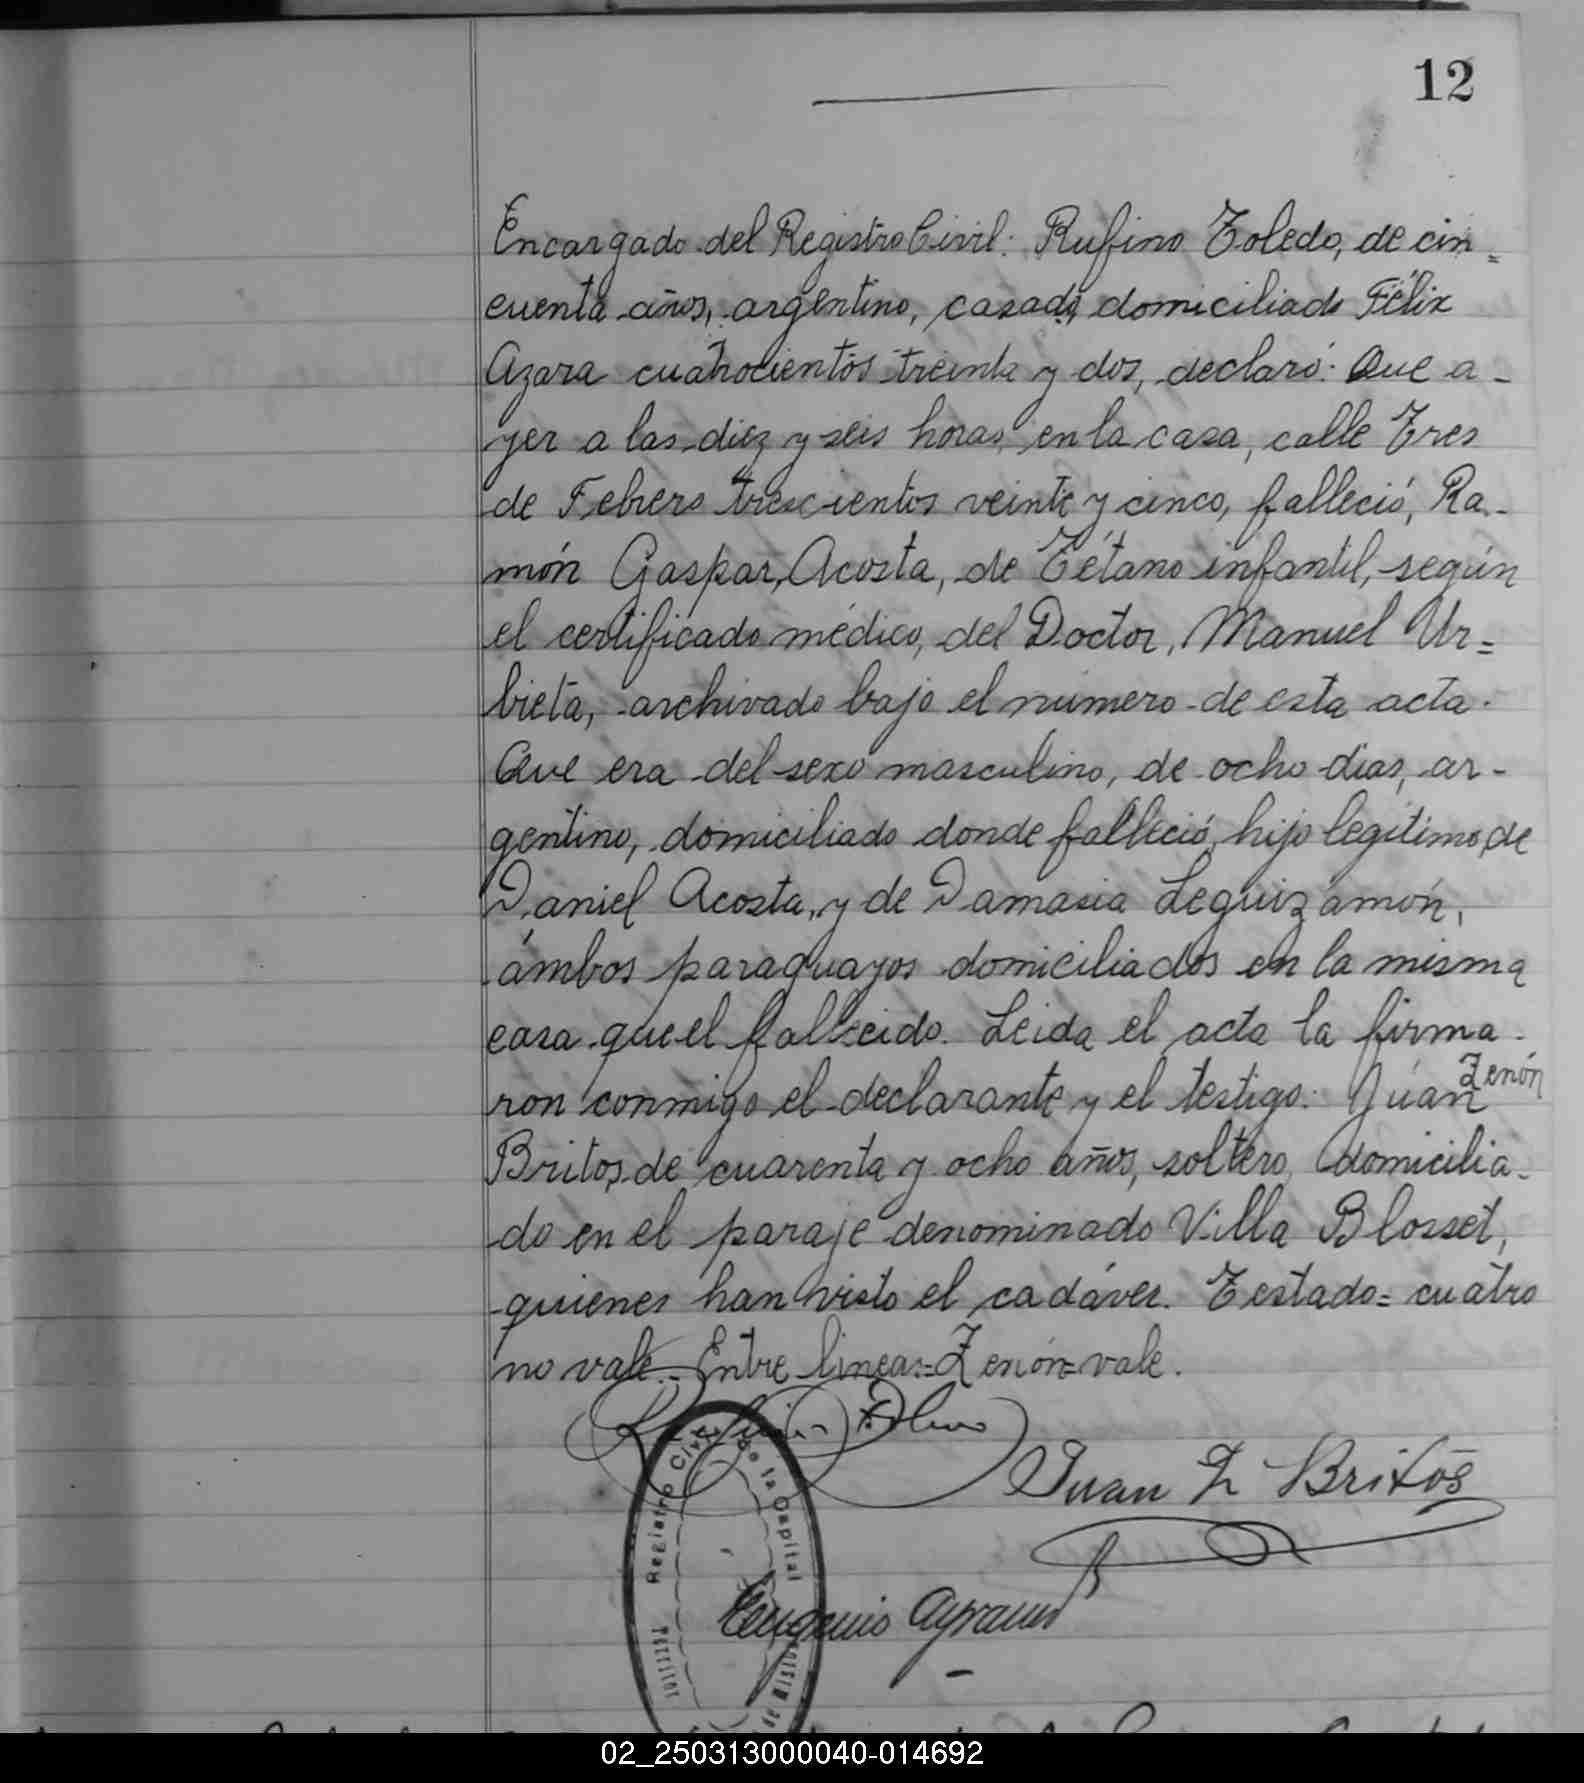 12
Encargado del Registro Civil: Rufino Toledo, de cin=
cuenta años, argentino, casado, domiciliado Félix
Azara cuatrocientos treinta y dos, declaró: Que a-
yer a las diez y seis horas, en la casa, calle Tres
de Febrero trescientos veinte y cinco, falleció, Ra-
món Gaspar, Acosta, de Tétano infantil, según
el certificado médico, del Doctor, Manuel Ur=
bieta, archivado bajo el número de esta acta.
Que era del sexo masculino, de ocho dias, ar-
gentino, domiciliado donde falleció, hijo legítimo de
Daniel Acosta, y de Damasia Leguizamón,
ámbos paraguayos domiciliados en la misma
casa que el fallecido. Leida el acta la firma-
ron conmigo el declarante y el testigo: Juan Zenón
Britos, de cuarenta y ocho años, soltero, domicilia-
do en el paraje denominado Villa Blosset,
quienes han visto el cadáver. Testado= cuatro
no vale.- Entre lineas=Zenón=vale.
Juan Z Britos
Registro Civil de la Capital
Eugenio
de Misiones
02_250313000040-014692